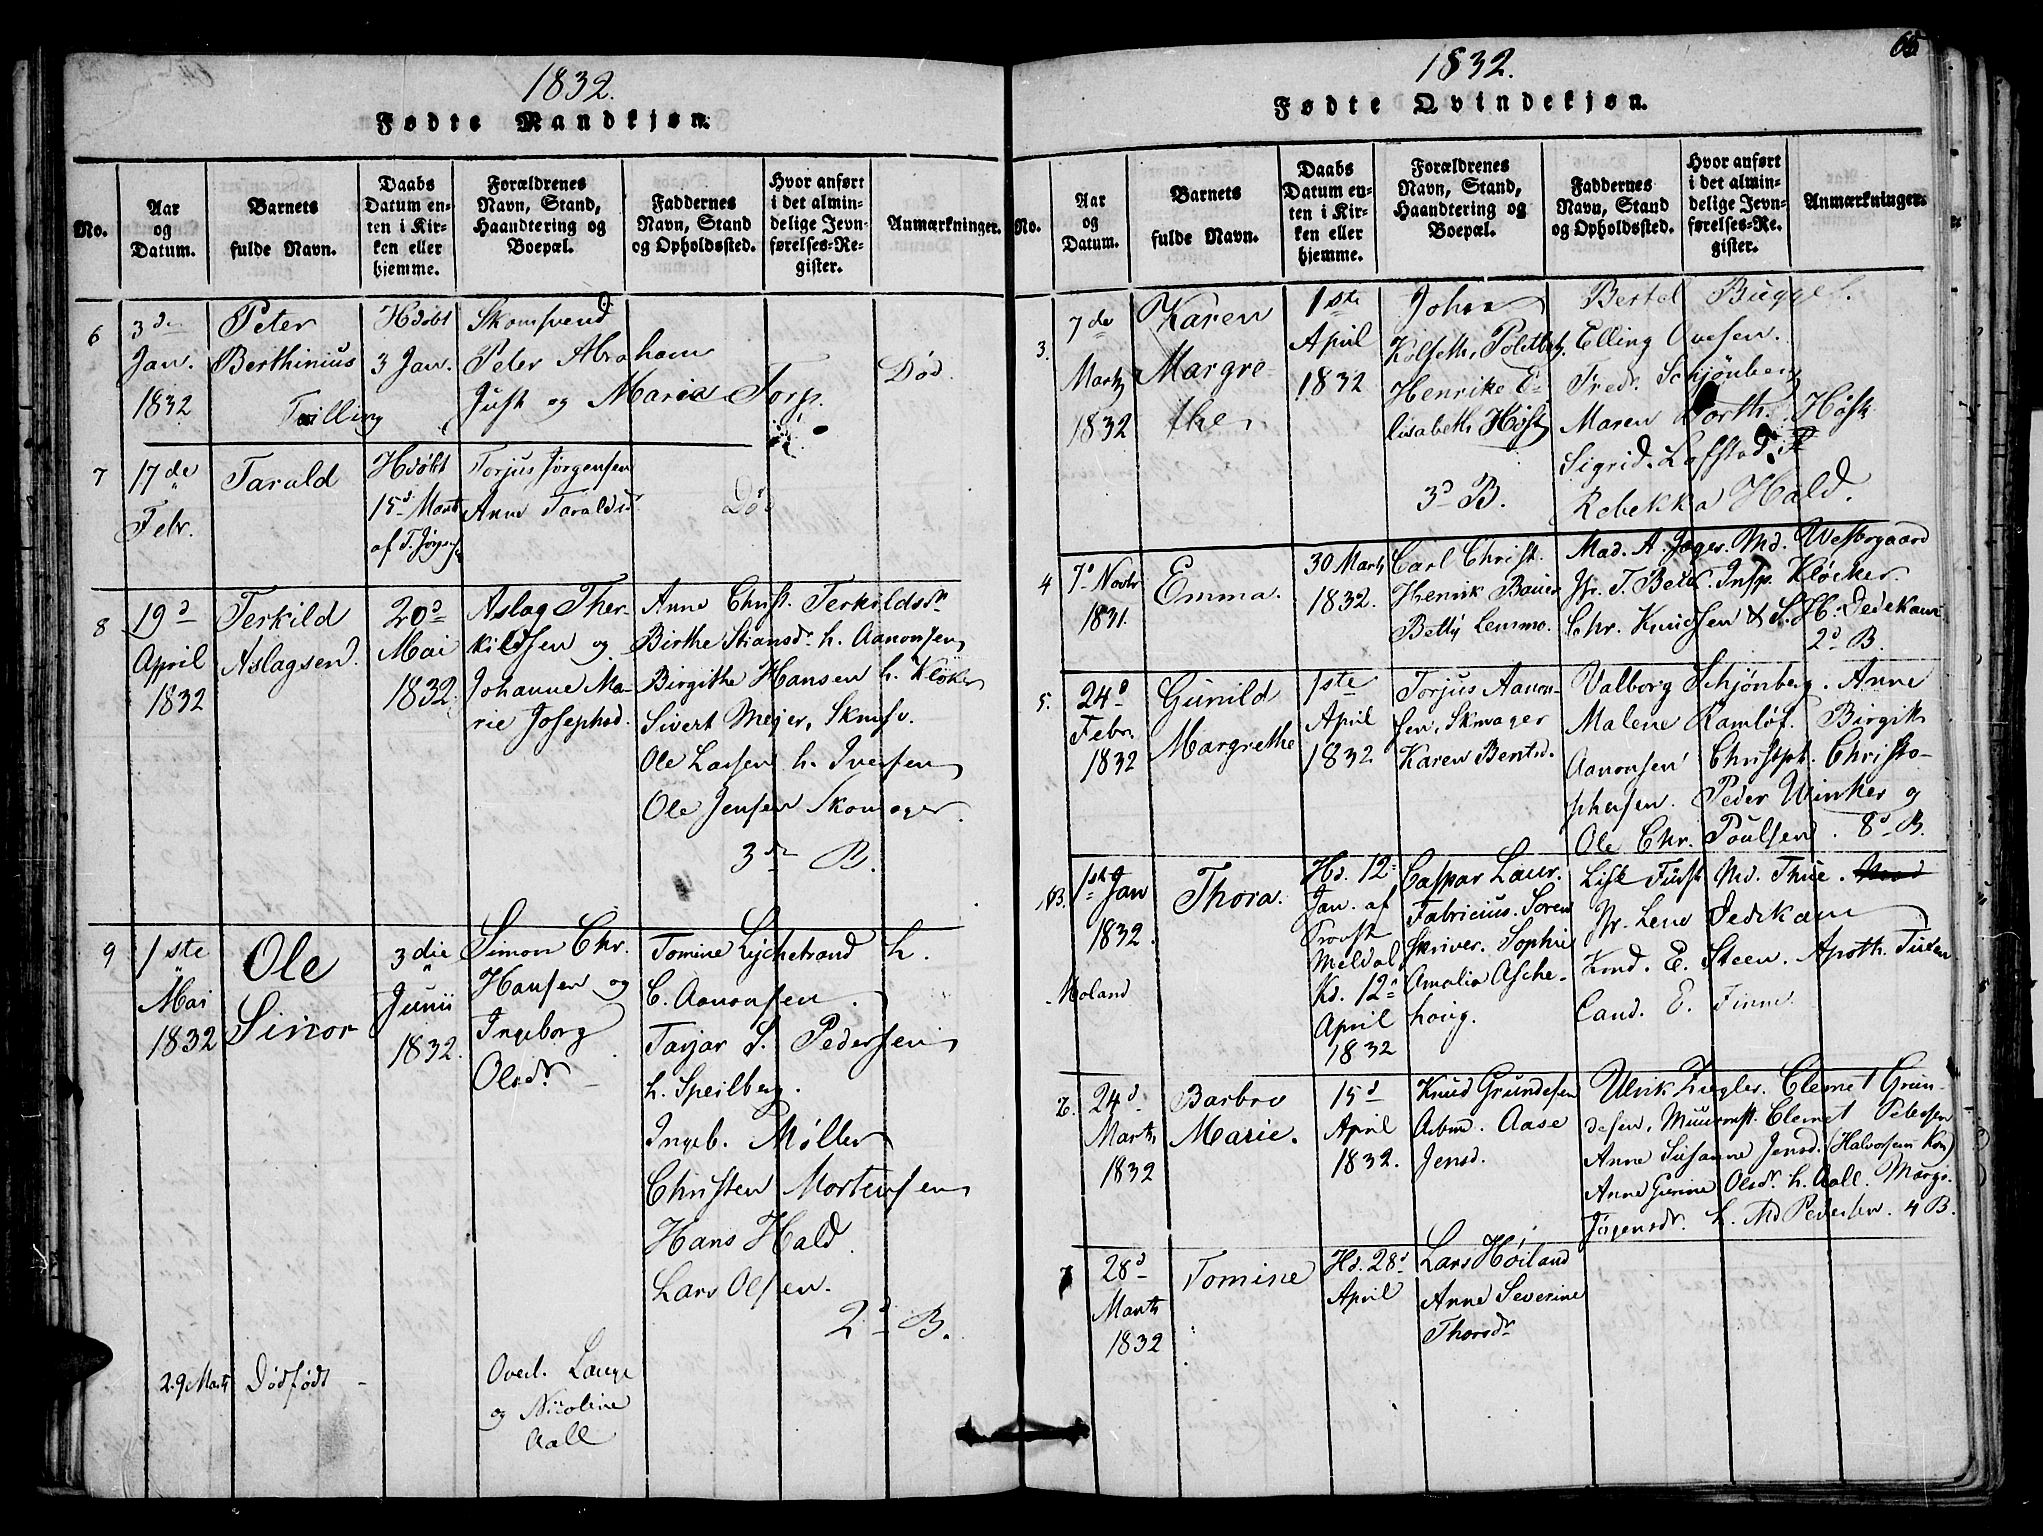 1832.
Fødte Mandkjøn.
No.
Aar og Datum.
Barnets fulde Navn.
Daabs Datum enten i Kirken eller hjemme.
Forældrenes Navn, Stand, Haandtering og Boepæl.
Faddernes Navn, Stand og Opholdssted.
Hvor anført i det almindelige Jevnførelses-Register.
Anmærkninger.
6
3die
Jan.
1832
Peter
Berthinius
Tvilling
Hdøbt
3 Jan.
Skomsvend
Peter Abraham
Just og Maria Torp.
Død.
7
17de
Febr.
Tarald
Hdøbt
15d Marts
af T. Jørgens.
Torjus Jörgensen
Anne Taraldsd
Død
8
19d
April
1832
Terkild
Aslagsen.
20d
Mai
1832
Aslag Ther-
kildsen og
Johanne Ma-
rie Josephsd.
Anne Christ. Terkildsdr
Birthe Stiansdr h. Aanonsen
Birgithe Hansen h. Klöker
Sivert Meyer, Skmsv.
Ole Larsen h. Iversen
Ole Jensen Skomager.
3die B.
9
1ste
Mai
1832
Ole
Simor
3die
Junii
1832.
Simon Chr.
Hansen og
Ingeborg
Olsdr.
Tomine Lychestrand h.
C. Aanonsen.
Tarjar S. Pedersen
h. Speilberg.
Ingeb. Møller
Christen Mortensen
Hans Hald
Lars Olsen.
2d B.
29 Marts
Dødfødt
Overl. Lange
og Nicoline
Aall
1832.
65
Fødte Qvindekjøn.
No.
Aar og Datum.
Barnets fulde Navn.
Daabs Datum enten i Kirken eller hjemme.
Forældrenes Navn, Stand, Haandtering og Boepæl.
Faddernes Navn, Stand og Opholdssted.
Hvor anført i det almindelige Jevnførelses-Register.
Anmærkninger.
3.
7de
Marts
1832
Karen
Margre-
the
1ste
April
1832
Johan
Kolseth, Politbetj.
Henrike E-
lisabeth Høst
3d B.
Bertel Bugge.
Elling Ovesen.
Fredr. Schjönberg
Maren Dorth. Høst
Sigrid Lofstad.
Rebekka Hald.
4
7d Novbr
1831.
Emma.
30 Marts
1832.
Carl Christ.
Henrik Bauer
Betty Lemmo.
Mad. A. Jæger. Md. Westergaard
Jfr. T. Bexer. Insp. Kløcker.
Chr. Knudsen & S. H. Dedekam
2d B.
5.
24d
Febr.
1832
Gunild
Margrethe
1ste
April
1832
Torjus Aanon-
sen, Skmager
Karen Bentsd.
Valborg Schjønberg. Anne
Malene Ramløf. Birgit
Aanonsen Christph. Christo-
phersen. Peder Winker og
Ole Chr. Poulsen. 8d B.
1ste Jan
1832.
Moland
Thora.
Hd. 12d
Jan. af
Provst
Meldal
Kd. 12d
April
1832
Caspar Laur.
Fabricius. Soren
Skriver. Sophie
Amalia Asche-
houg.
Lise Fürst Md. Thue.
Jfr. Lene Dedekam
Kmd. E. Steen. Apoth. Tuxen
Cand. E. Finne.
6.
24d
Marts
1832
Barbro
Marie.
15d
April
1832.
Knud Grundesen
Arbmd. Aase
Jensd.
Ulrik Ziegler. Clemet Grun-
desen, Muurmst. Clemet Petersen
Anne Susanne Jensd. (Halvorsens Kon)
Anne Gurine Olsdr. h. Aall. Margr.
Jörgensdr. h. Md Pedersen. 4 B.
7
28d
Marts
1832
Tomine
Hd. 28d
April
Lars Høiland
Anne Severine
Thorsdr